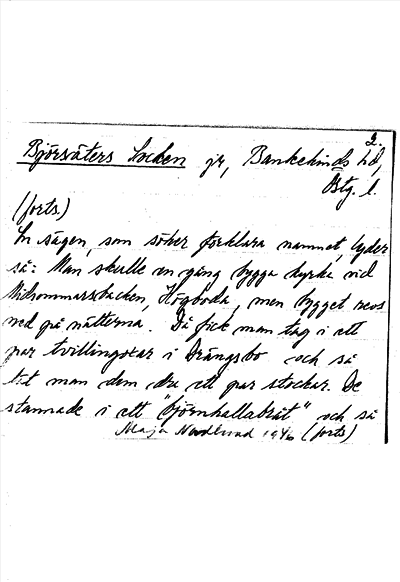 2.
Björsäters socken js, Bankekinds hd,
Ötg. l.
(forts)
En sägen, som söker förklara namnet, lyder
så: Man skulle en gång bygga kyrka vid
Midsommarsbacken, Högboda, men bygget revs
ned på nätterna. Då fick man tag i ett
par tvillingoxar i Drängsbo och så
lät man dem dra ett par stockar. De
stannade i ett "björnhallabråt" och så
Maja Nordlund 1946 (forts)